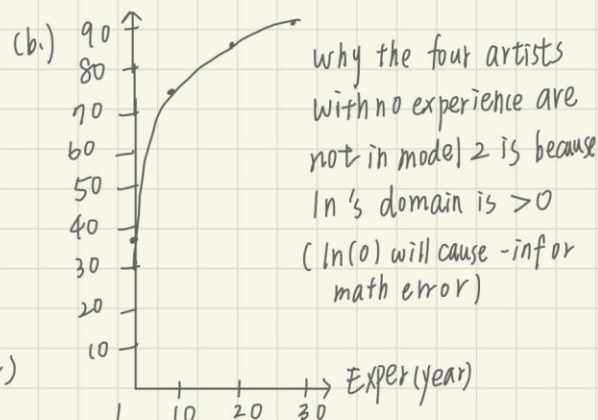 (b.)
90
80
70
60
50
40
30
20
10
1 10 20 30
Exper(year)
why the four artists
with no experience are
not in model 2 is because
ln's domain is >0
(ln(0) will cause -inf or
math error)
)